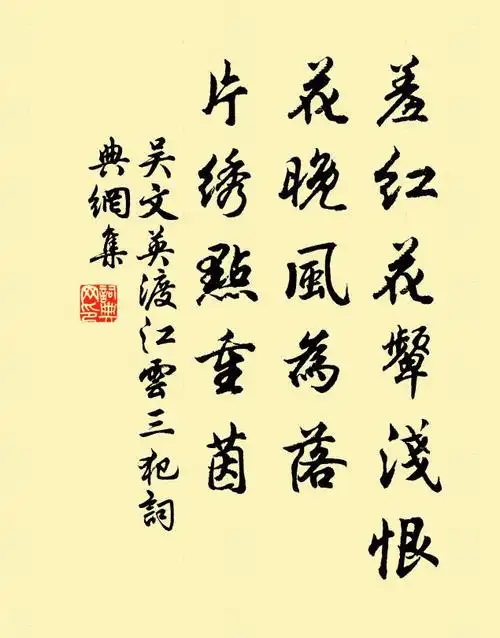 羞红花顰淺恨
花晚風為落
片绣點重茵
吴文英渡江雲三犯詞
典網集
詞典
网印